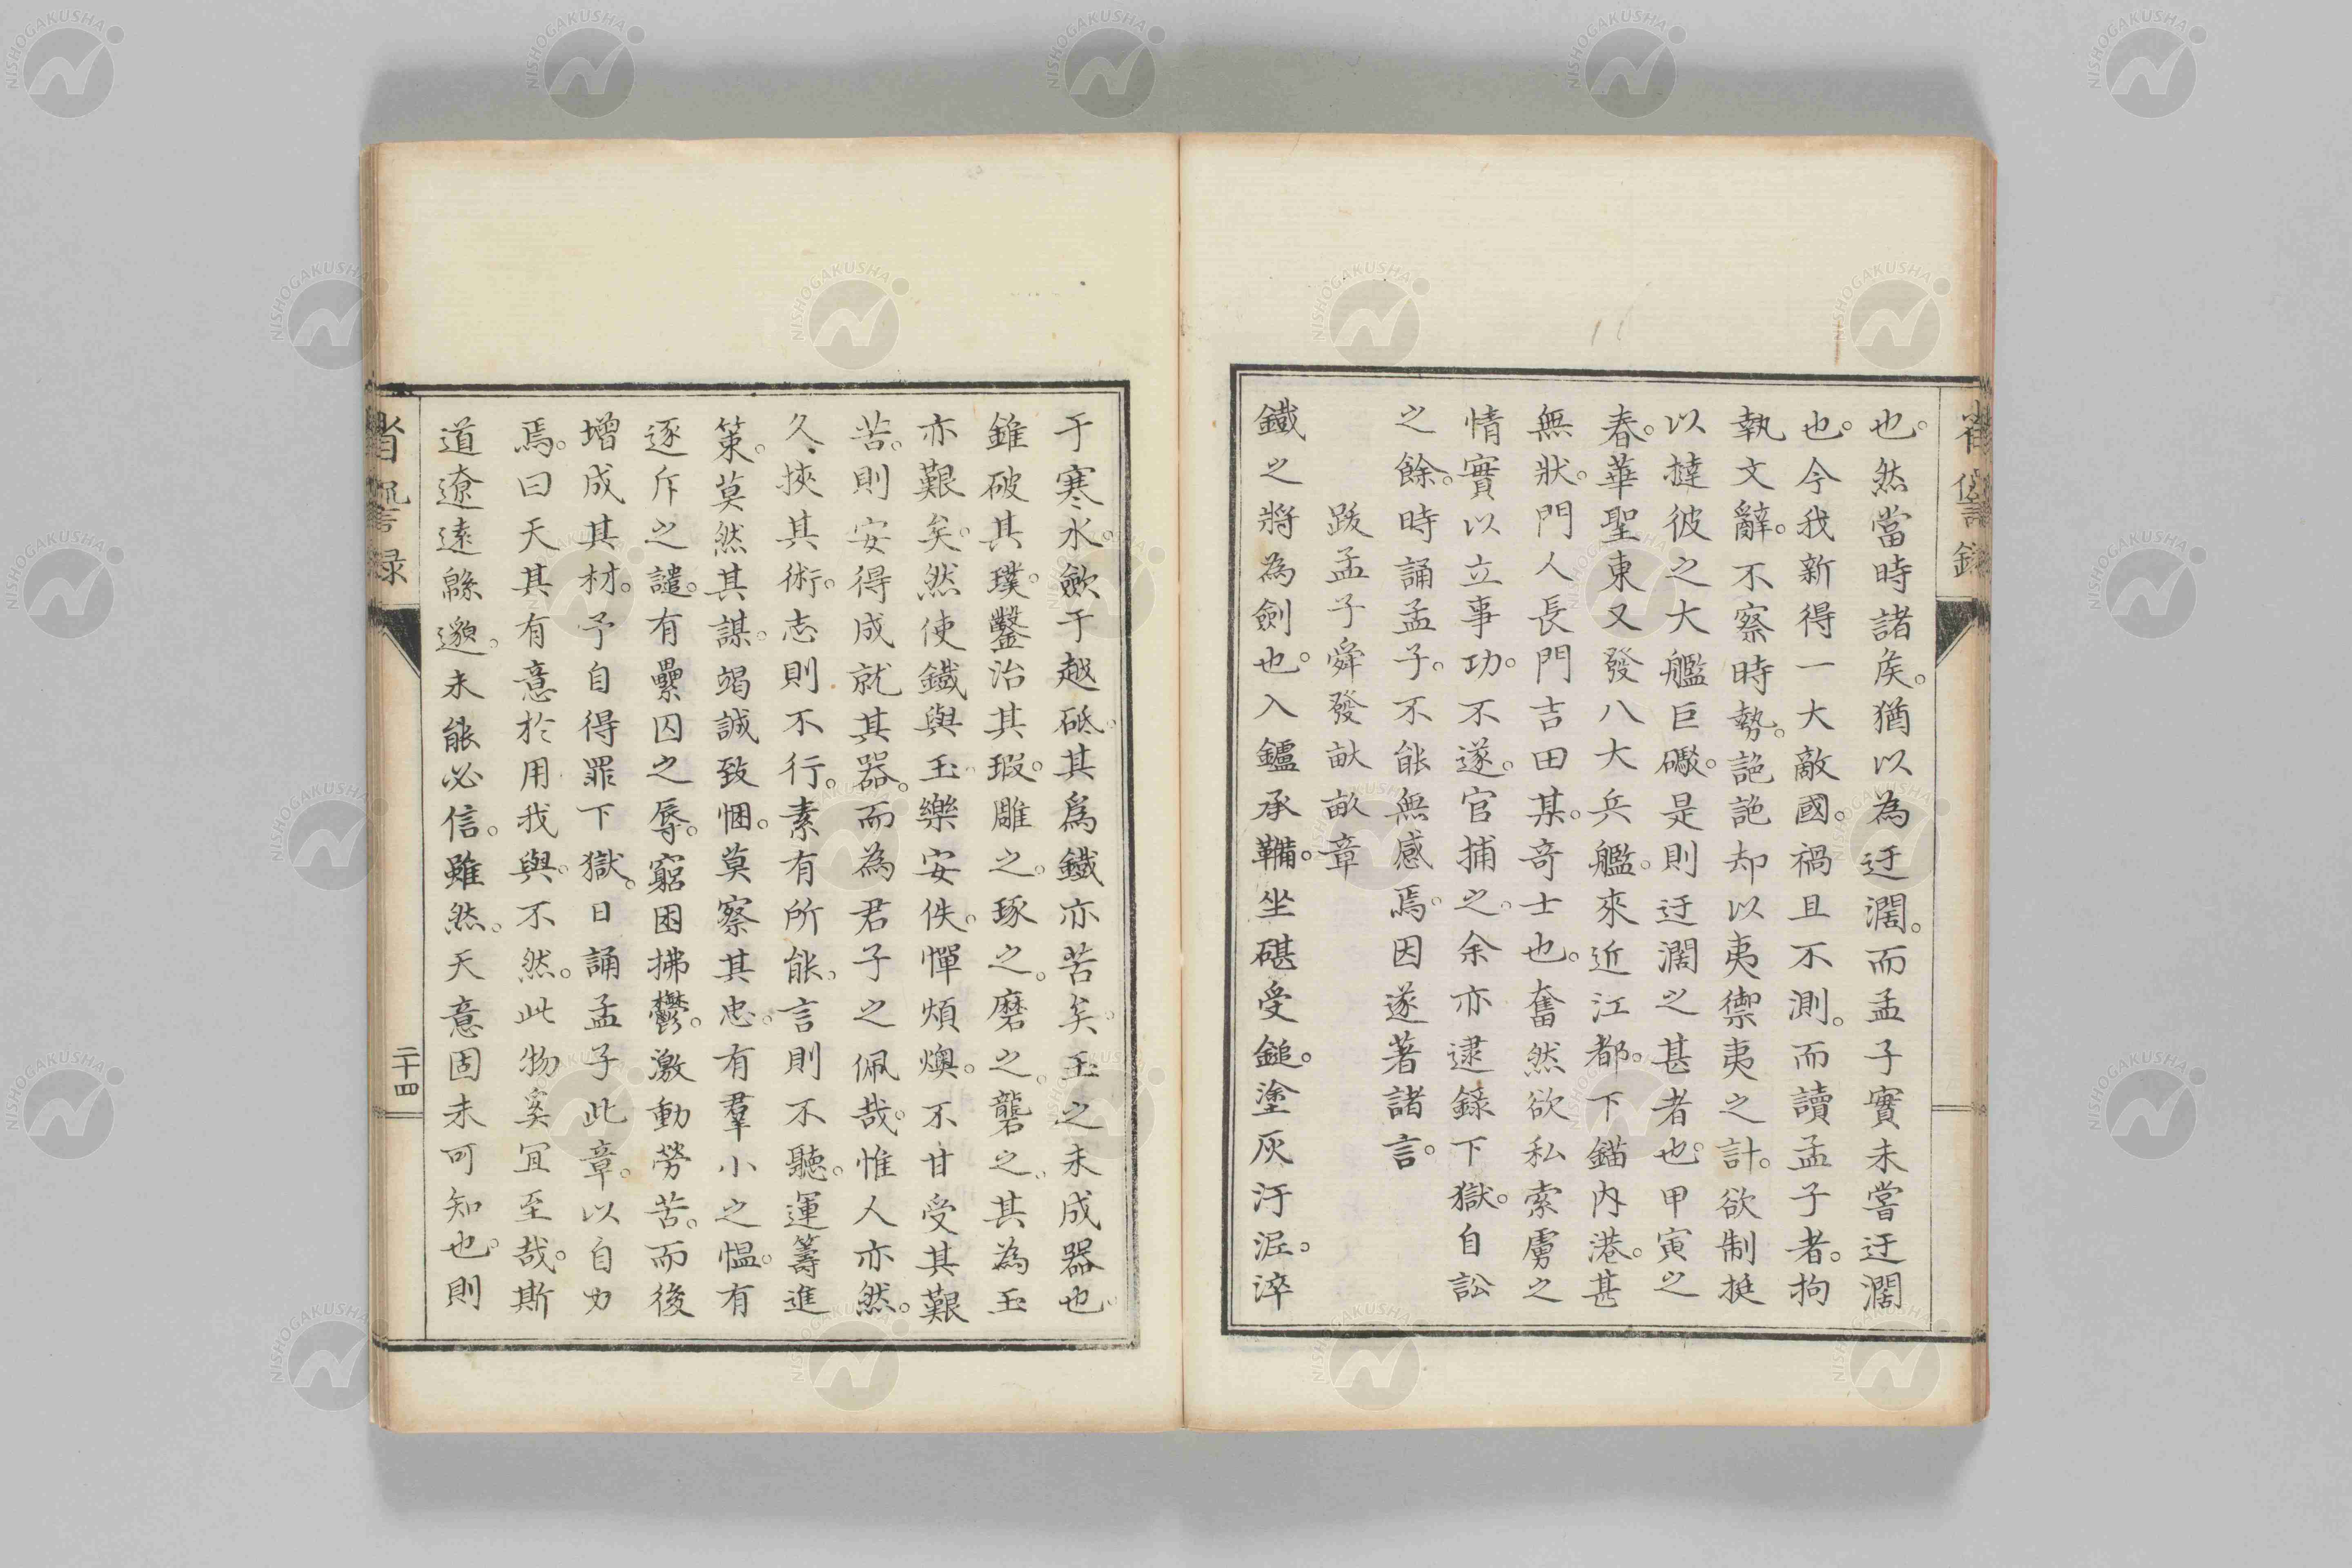 也。然當時諸矦。猶以為迂濶。而孟子實未嘗迂濶
也。今我新得一大敵國。禍且不測。而讀孟子者。拘
執文辭。不察時勢。詭詭却以夷禦夷之計。欲制挺
以撻彼之大艦巨礮。是則迂濶之甚者也。甲寅之
春。華聖東又發八大兵艦。來近江都。下錨內港。甚
無狀。門人長門吉田某。奇士也。奮然欲私索虜之
情實以立事功。不遂。官捕之。余亦逮錄下獄。自訟
之餘。時誦孟子。不能無感焉。因遂著諸言。
跋孟子舜發畎畝章
鐵之將為劍也。入鑪承鞴。坐碪受鎚。塗灰汙泥。淬
于寒水。歛于越砥。其爲鐵亦苦矣。玉之未成器也
錐破其璞。鑿治其瑕。雕之。琢之。磨之。礱之。其為玉
亦艱矣。然使鐵與玉樂安佚。憚煩燠。不甘受其艱
苦。則安得成就其器。而為君子之佩哉。惟人亦然。
久挾其術。志則不行。素有所能。言則不聽。運籌進
策。莫然其謀。竭誠致悃。莫察其忠。有羣小之慍。有
逐斥之譴。有纍囚之辱。窮困拂鬱。激動勞苦。而後
增成其材。予自得罪下獄。日誦孟子此章。以自力
焉。曰天其有意於用我與。不然。此物奚宜至哉。斯
道遼遠緜邈。未能必信。雖然。天意固未可知也。則
省諐録
二十四